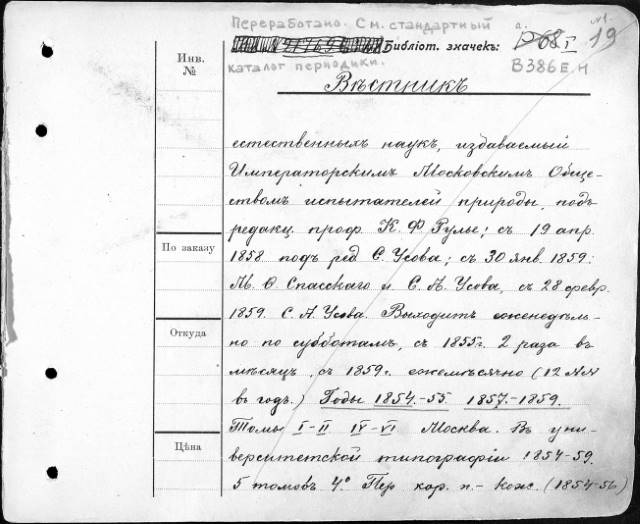 Переработано. См. стандартный
Библіот. значекъ:
каталог периодики.
№1.
19
В386 Е.Н
Инв.
№
По заказу
Откуда
Цѣна
Вѣстникъ
естественныхъ наукъ, издаваемый
Императорскимъ Московскимъ Обще-
ствомъ испытателей природы, подъ
редакц. проф. К. Ф Рулье; съ 19 апр.
1858 подъ ред С. Усова; съ 30 янв. 1859:
М. Ѳ. Спасскаго и С. А. Усова, съ 28 февр.
1859. С. А. Усова. Выходитъ еженедѣль-
но по субботамъ, съ 1855г. 2 раза въ
мѣсяцъ, съ 1859г. ежемѣсячно (12 №№
въ годъ.) Годы 1854.-55 1857.-1859.
Томы I-II IV-VI Москва. Въ уни-
верситетской типографіи 1854-59.
5 томовъ 4° Пер кор. п.- кож. (1854-56)